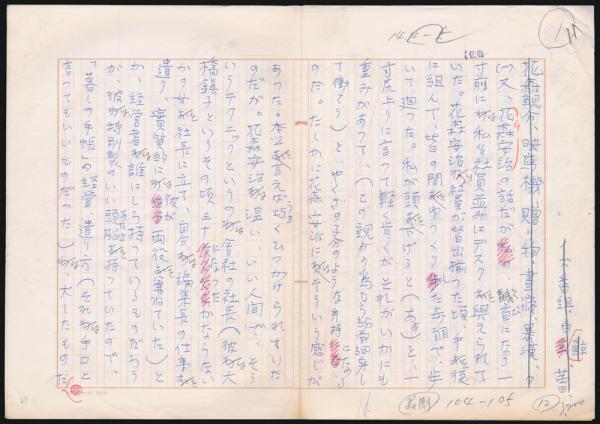 (又、花森安治の話だが、馘首になる一
寸前にわ私も社員並みにデスクを与えられて
いた。花森安治は社員が皆出揃った頃、手を後
に組んで皆の間をゆっくりした歩調で、歩
いて廻った。私が頭を下げると(ああ)と、一
寸尻上りに言って軽く肯くが、それがいかにも
重みがあって、(この親分の為なら粉骨砕身し
て働こう)と、やくざの子分のような気持になる
のだ。たしかに花森安治にわそういう感じが
あった。本当を言えば巧くひっかけられていた
のだが。花森安治わ温い、いい人間で、そう
いうテクニックというのわ会社の社長(彼わ大
橋鎮子というその頃三十になったかならない
かの女を社長に立て、自分わ編集長の仕事を
遣り、実質的にわ彼が両役を兼ねていた)と
か、経営者わ誰にしろ持っているものだろう
が、彼わ特別製のいい頭脳を持っていたので、
「暮しの手帳」の経営、遣り方(それわ手口と
言ってもいいものだった)わ、大したものだ
104-105